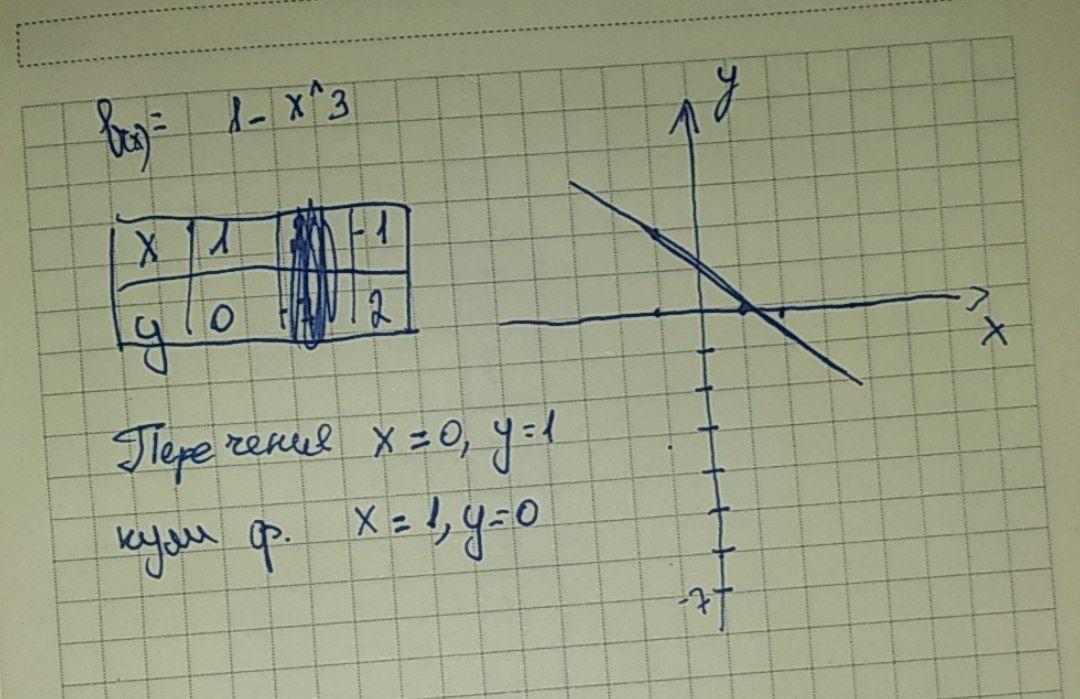 f(x)= 1- x^3
x 1 -1
y 0 2
Перечения x=0, y=1
нули ф. x=1, y=0
y
x
-7